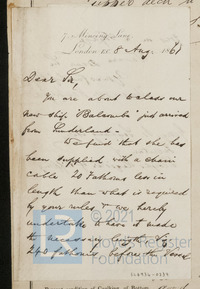 7 Mincing Lane
London EC 8 Aug 1861
Dear Sir,
You are about to class our
new ship "Batavia" just arrived
from Sunderland.
We find that she has
been supplied with a chain
cable 20 Fathoms less in
length than what is required
by your rules & we hereby
undertake to have it made
the necessary length
fathoms before the
© 2021
Lloyd's Register
Foundation